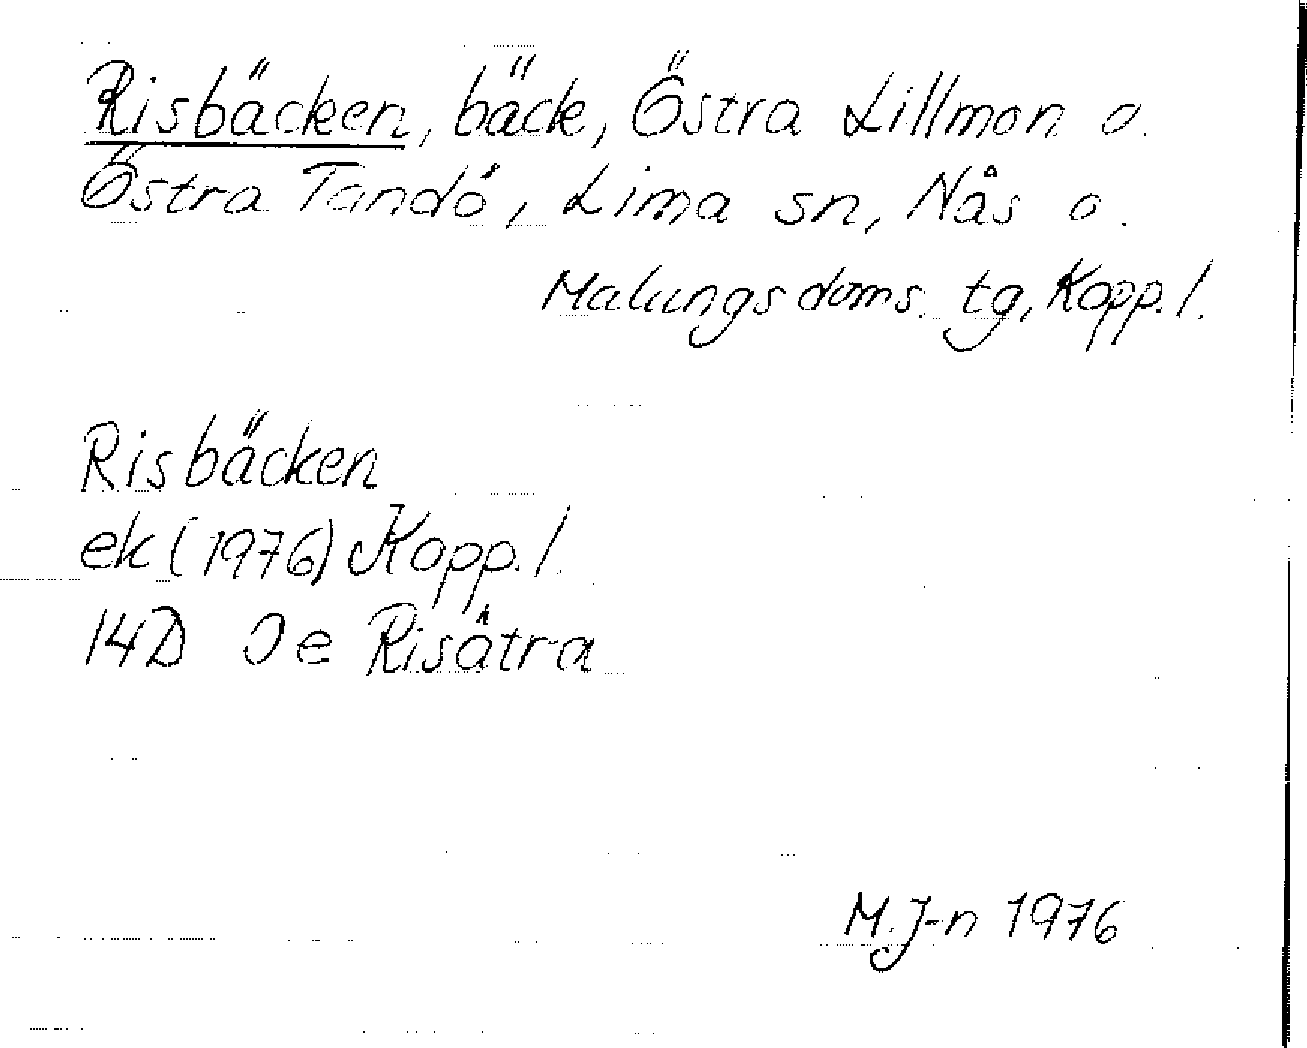 Risbäcken, bäck, Östra Lillmon o.
Östra Tandö, Lima sn, Nås o.
Malungs doms. tg, Kopp. l.
Risbäcken
ek (1976) Kopp. l.
14D 0e Risätra
M. J-n 1976